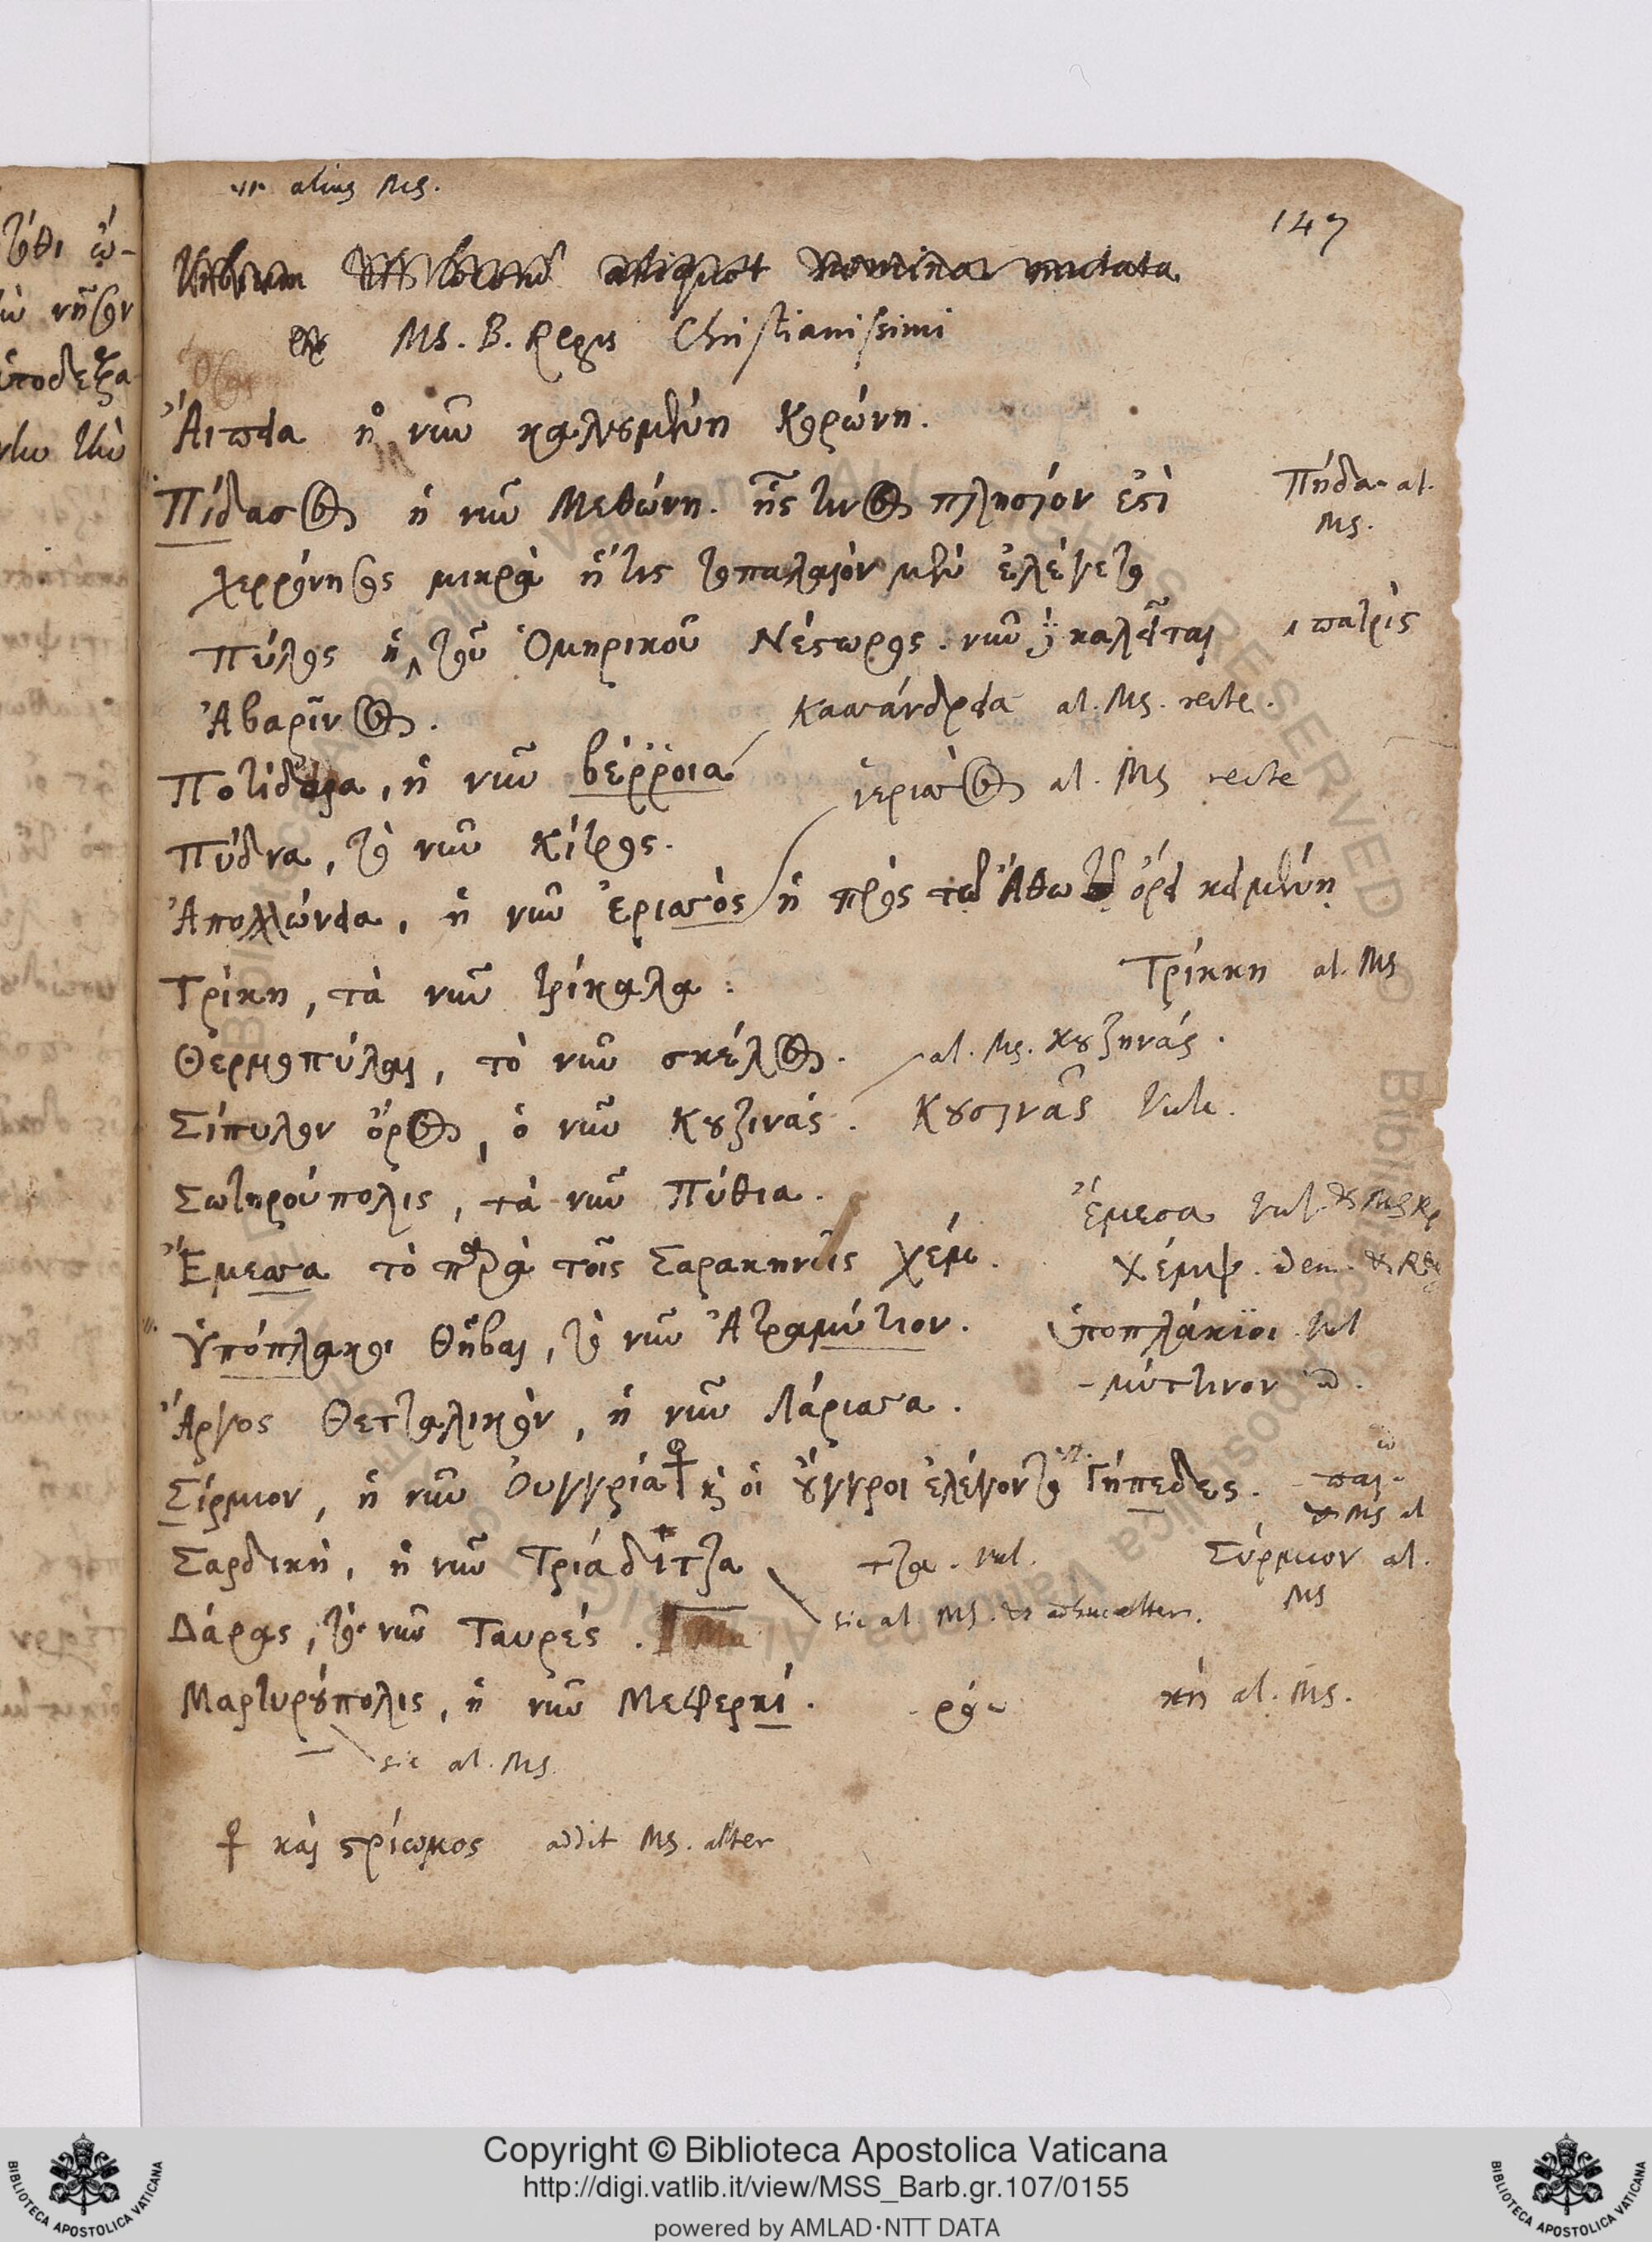 alius Ms.
147
Urbium locorum aliquot Nomina mutata
ex Ms. B. Regis Christianissimi
Ἄιπεια ἡ νῦν καλουμένη Κορώνη.
Πίδασος ἡ νῦν Μεθώνη. ἧς τινος πλησίον ἐστὶ
Πήδα- al. Ms.
χερρόνησος μικρὰ ἥτις τοπαλαιὸν μὲν ἐλέγετο
Πύλος ἡ τοῦ Ὁμηρικοῦ Νέστωρος. νῦν δὲ καλεῖται
πατρὶς
Ἀβαρῖνος.
Κασσάνδρεια al. Ms. recte.
Ποτίδαια, ἡ νῦν βέρροια
ἱερισσὸς al. Ms recte
Πύδνα, τὸ νῦν κίτρος.
Ἀπολλώνεια, ἡ νῦν ἐρισσὸς ἡ πρὸς τῷ Ἄθω τῷ ὄρει κειμένη
Τρίκη, τὰ νῦν τρίκαλα :
Τρίκκη al. Ms
Θερμοπύλαι, τὸ νῦν σκέλος.
al. Ms. κουζηνάς.
Σίπυλον ὄρος, ὁ νῦν Κουζινάς.
Κουσινᾶς Vul.
Σωτηρούπολις, τὰ νῦν Πύθια.
Ἔμεσσα τὸ παρὰ τοῖς Σαρακηνοῖς χέμ.
Ἔμεσα Vul. & Ms R
χέμψ. idem. & R
Ὑπόπλακοι Θῆβαι, τὸ νῦν Ἀτραμύτιον.
ὑποπλάκιοι Vul
-μύττινον
Ἄργος Θετταλικὸν, ἡ νῦν Λάρισσα.
Σίρμιον, ἡ νῦν Ὀυγγρία ⳨ καὶ οἱ οὔγγροι ἐλέγοντο Γήπεδες.
-παι-
& Ms al
Σαρδικὴ, ἡ νῦν Τριάδιτζα
τζα. Vul.
Σύρμιον al.
Ms
Δάρας, τὸ νῦν Ταυρές.
sic al. Ms. & adhuc alter.
Μαρτυρούπολις, ἡ νῦν Μεφερκί.
ρό-
κὴ al. Ms.
sic al. Ms.
καὶ στρίωμος addit Ms. alter
Copyright © Biblioteca Apostolica Vaticana
http://digi.vatlib.it/view/MSS_Barb.gr.107/0155
powered by AMLAD·NTT DATA